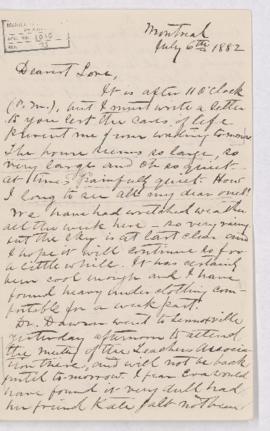 Montreal
July 6th 1882
Dearest Love,
It is after 11 O'Clock
(P.M.), but I must write a letter
to you lest the cares of life
prevent me from writing tomorrow
The house seems so large, so
very large and oh so quiet.
at times painfully quiet. How
I long to see all my dear ones!
We have had wretched weather
all the week here - so very rainy
but the sky is at last clear and
I hope it will continue so for
a little while. It has certainly
been cool enough and I have
found heavy underclothing com-
fortable for a week past.
Dr. Dawson went to
yesterday afternoon to attend
the meeting of the Teachers Associa-
tion there, and will not be back
until tomorrow. I fear Eva would
have found it very dull had
her friend Kate not been